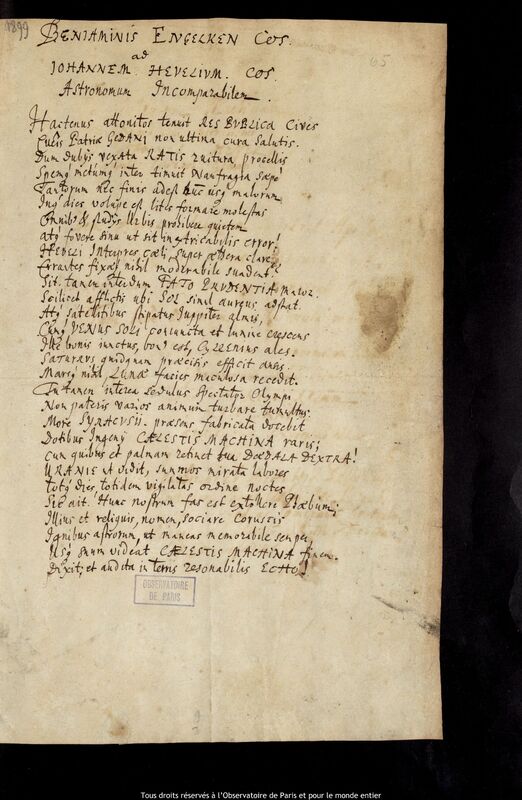 1899
65
BENIAMINIS ENGELKEN COS.
ad
IOHANNEM HEVELIUM. COS.
Astronomum Incomparabilem.
Hactenus attonitos tenuit RES PUBLICA Cives
Patriæ GEDANI non ultima cura Salutis.
Dum dubijs vexata RATIS ruitura procellis
Spemq; metumq; inter timuit Naufragia sæpe
Tantorum nec finis adest usq; malorum,
Inq; dies volupe est lites formare molestas
Omnib9 & studijs Urbis prohibere quietem
Atq; fovere sinu ut sit inextricabilis error!
HEVELI Interpres cæli, super æthera clare,
Errantes fixæq; nihil moderabile suadent?
Sit tamen interdum FATO PRUDENTIA maior.
Scilicet afflictis ubi SOL simul aureus adstat.
Atq; satellitibus stipatus Iuppiter almis,
Cumq; VENUS SOLI coniuncta et lumine crescens
Ille bonis iunctus, bon9 est, CYLLENIUS ales.
SATURNUS quidquam præcisis efficit ansis.
Marsq; nihil, LUNÆ facies maculosa recedit.
Tu tamen interea sedulus spectator Olympi
Non pateris varios animum turbare tumultus.
More SYRACUSII præsens fabricata docebit
Dotibus Ingenij CÆLESTIS MACHINA raris;
Cum quibus et palmam retinet tua DÆDALA DEXTRA!
URANIE ut vidit, summos mirata labores
totq; dies, totidem vigilatas ordine noctes
Sic ait. Hunc nostrum fas est extollere Phœbum;
Illius et reliquis, nomen, sociare Coruscis
Ignibus astrorum, ut maneat memorabile semper,
Usq; suum videat CÆLESTIS MACHINA finem.
Dixit; et audita in terris resonabilis ECHO!
OBSERVATOIRE
DE PARIS
Tous droits réservés à l'Observatoire de Paris et pour le monde entier